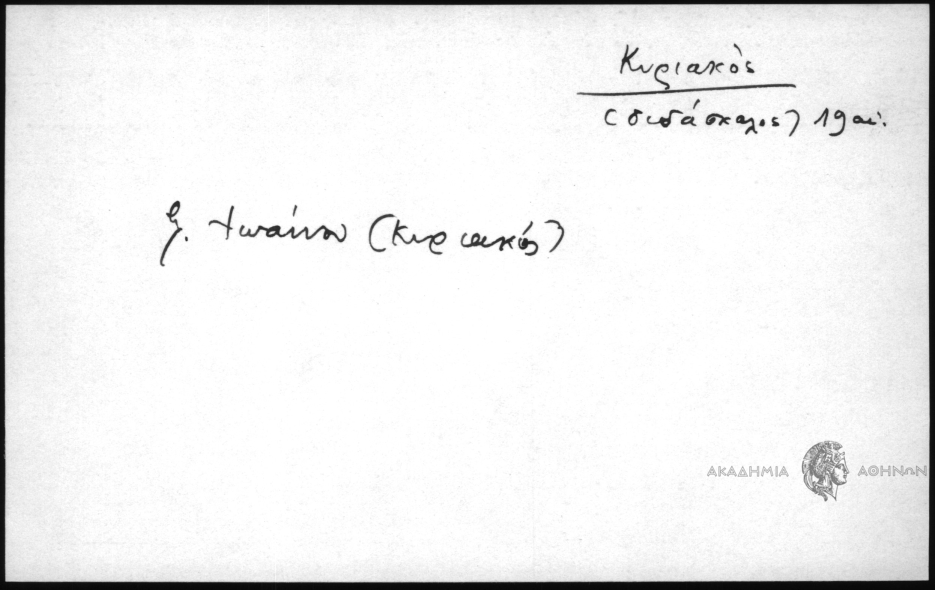 Κυριακὸς
(διδάσκαλος) 19 αι.
Ἰωάννου (Κυριακός)
ΑΚΑΔΗΜΙΑ ΑΘΗΝΩΝ